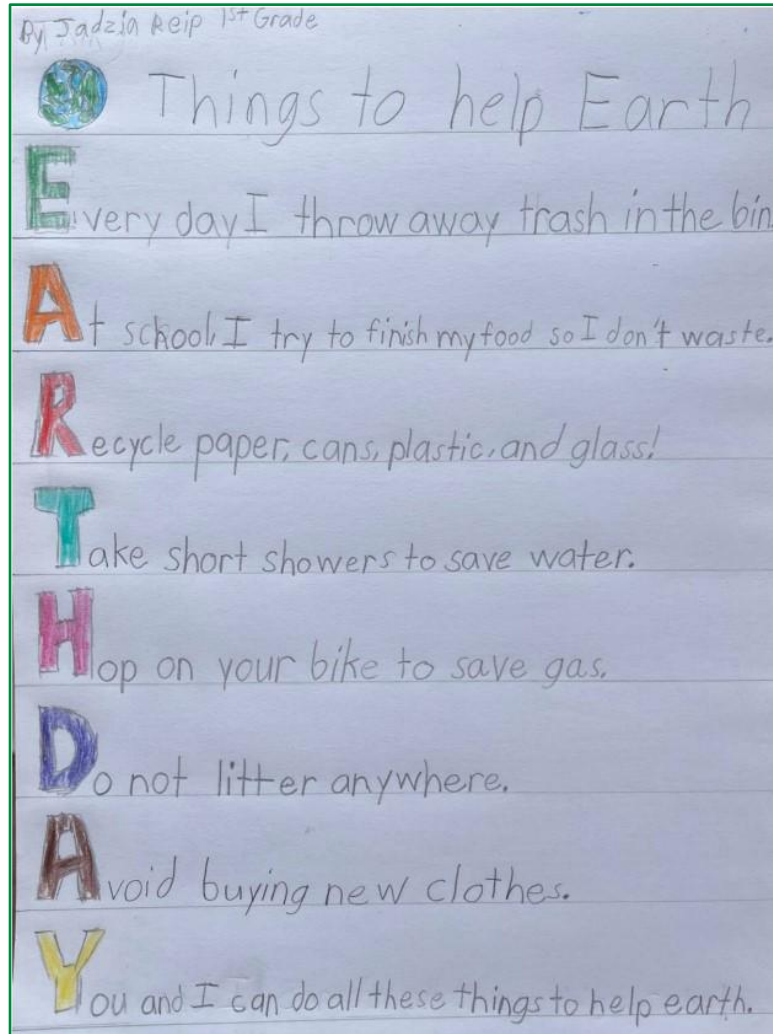 By Jadzia Reip 1st Grade
Things to help Earth
Every day I throw away trash in the bin.
At school, I try to finish my food so I don't waste.
Recycle paper, cans, plastic, and glass!
Take short showers to save water.
Hop on your bike to save gas.
Do not litter anywhere.
Avoid buying new clothes.
You and I can do all these things to help earth.